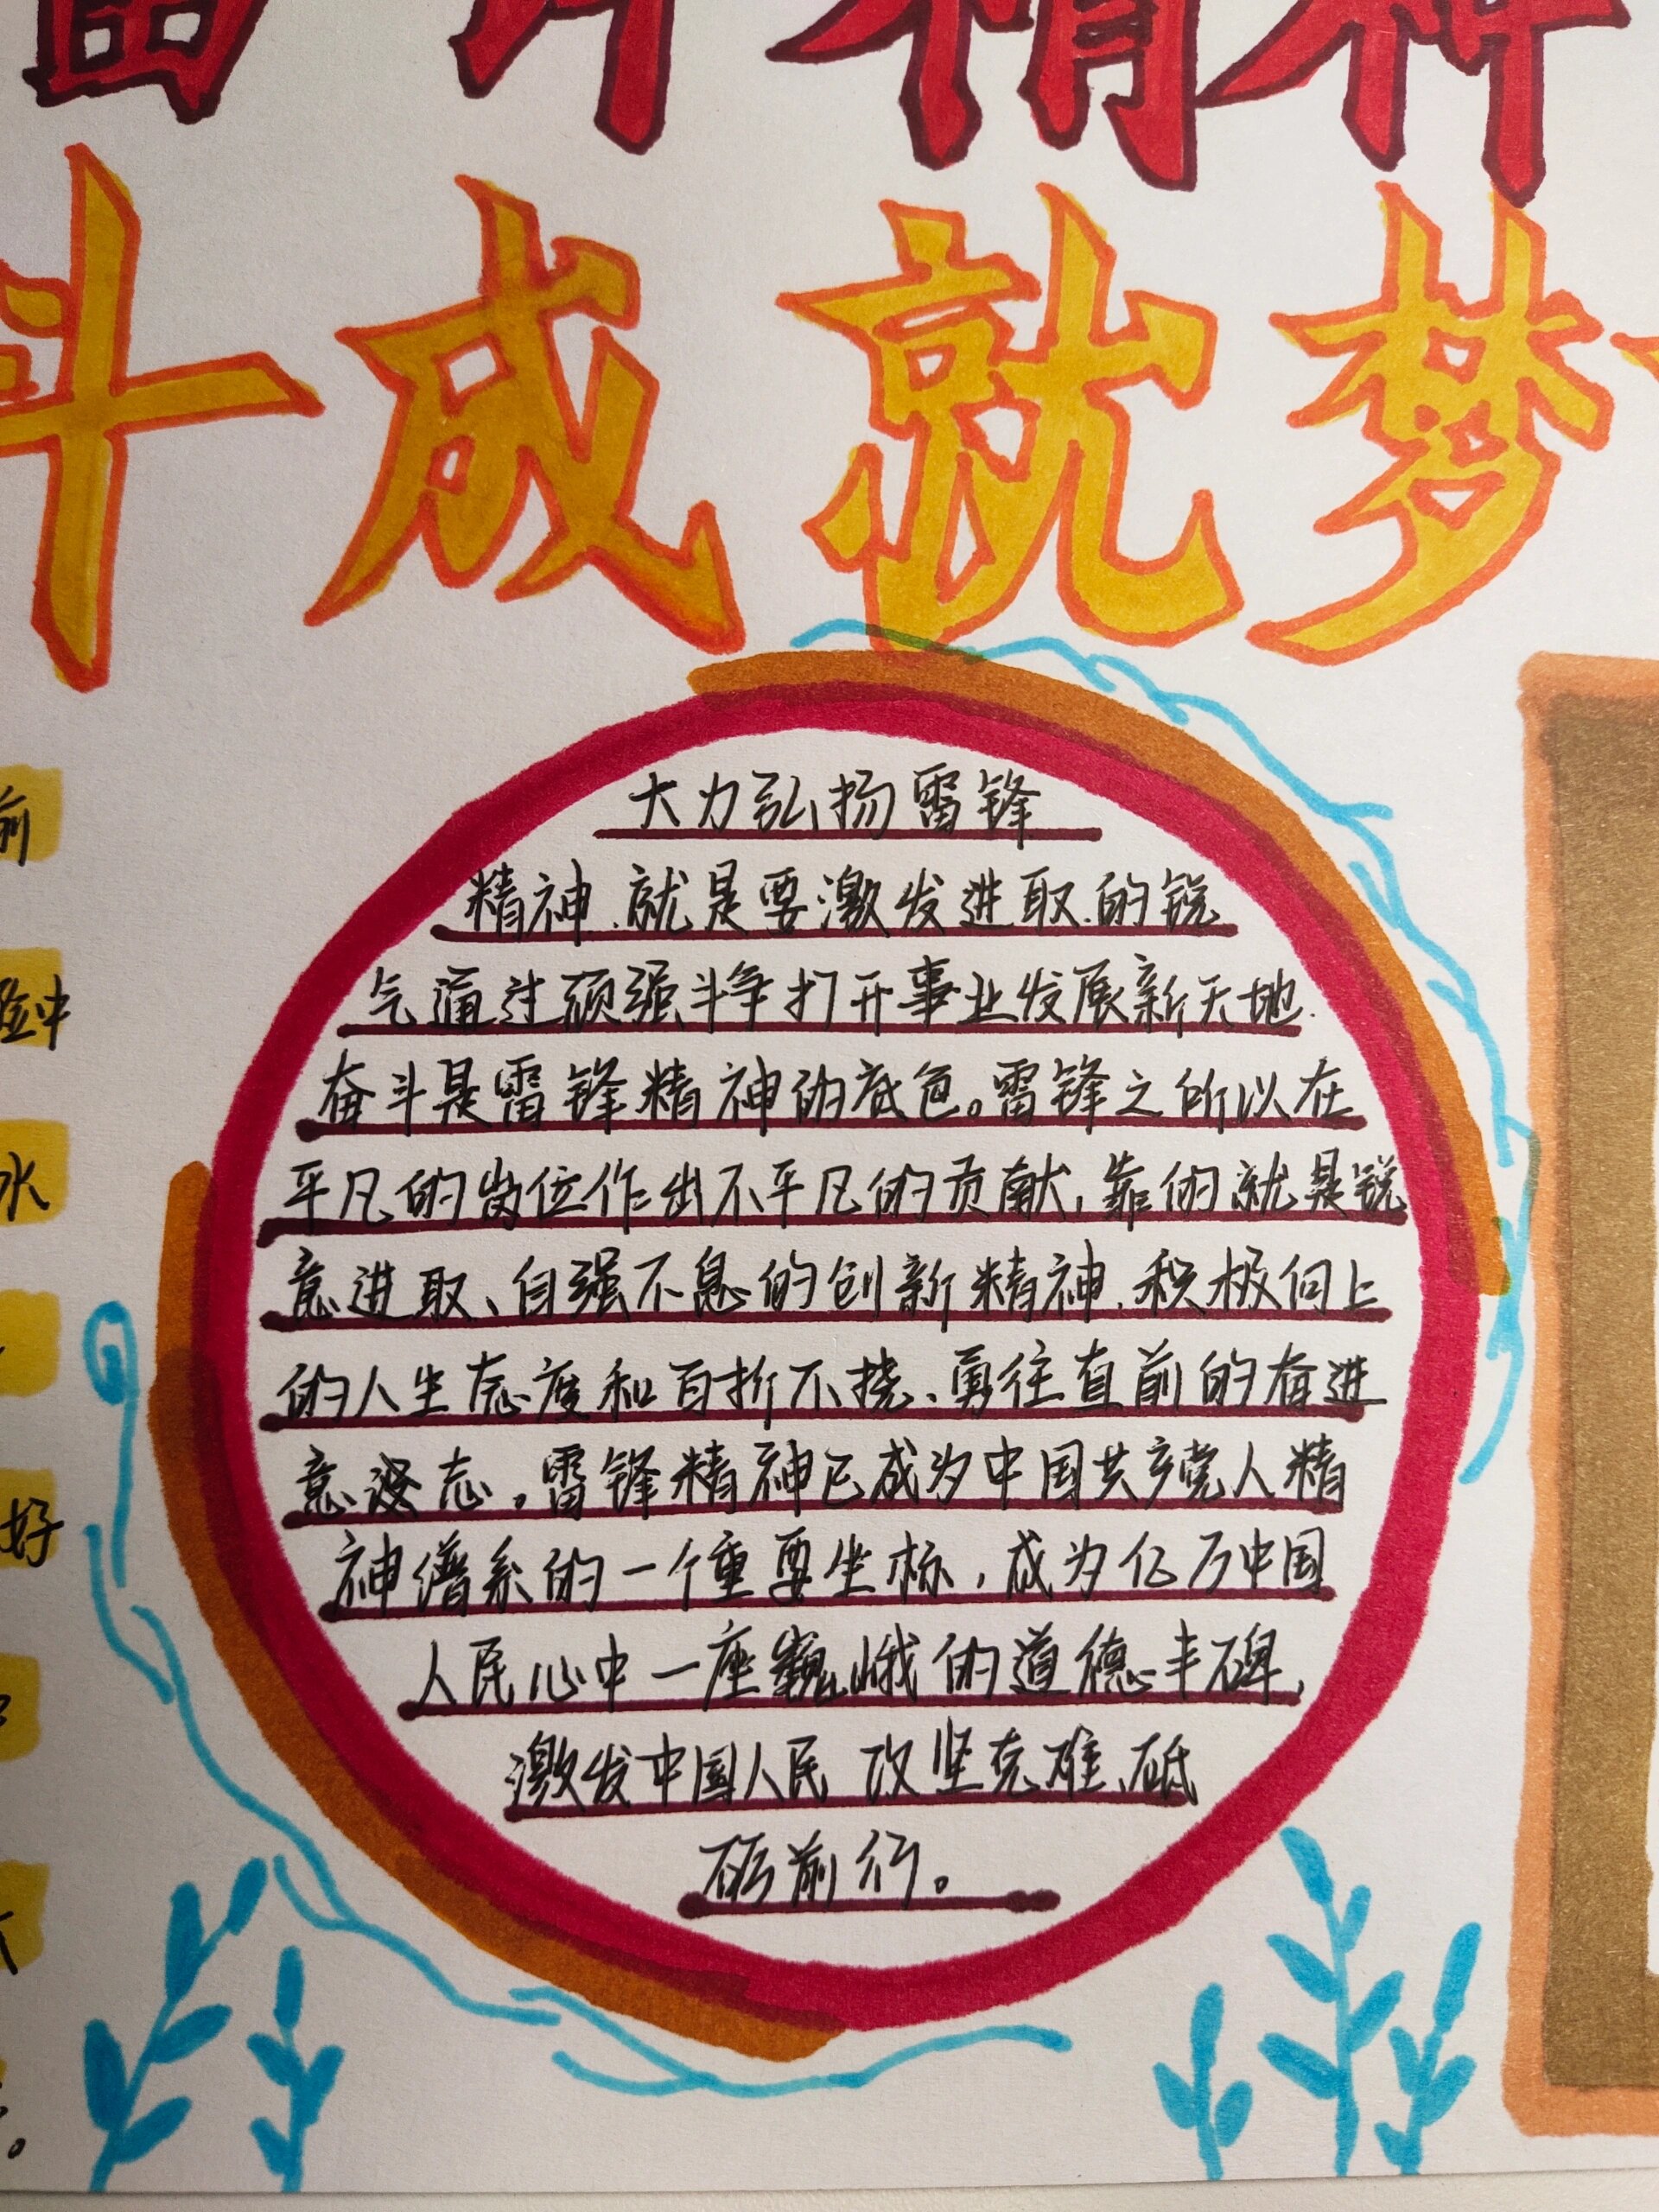 雷锋精神
斗成就梦
大力弘扬雷锋
精神,就是要激发进取的锐
气通过顽强斗争打开事业发展新天地.
奋斗是雷锋精神的底色。雷锋之所以在
平凡的岗位作出不平凡的贡献,靠的就是锐
意进取、自强不息的创新精神,积极向上
的人生态度和百折不挠、勇往直前的奋进
意志。雷锋精神已成为中国共产党人精
神谱系的一个重要坐标,成为亿万中国
人民心中一座巍峨的道德丰碑,
激发中国人民攻坚克难、砥
砺前行。
前
险中
水
好